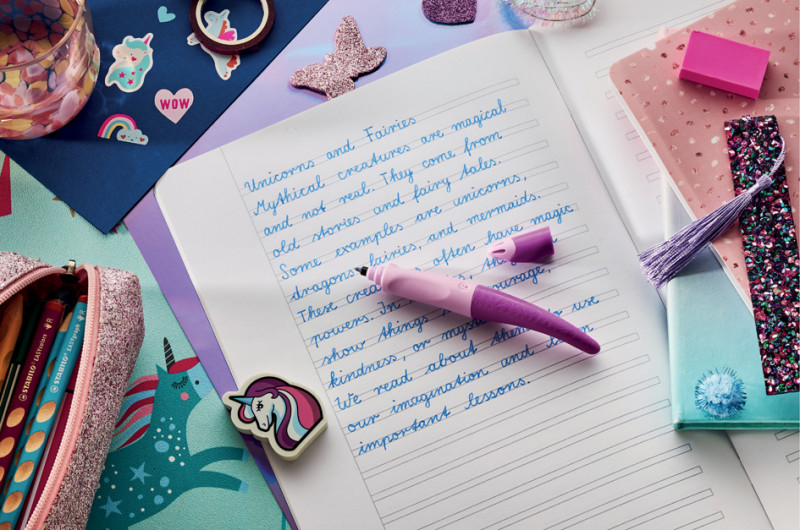 WOW
Unicorns and Fairies
Mythical creatures are magical
and not real. They come from
old stories and fairy tales.
Some examples are unicorns,
dragons, fairies, and mermaids.
These often have magic
powers. In
show things
kindness, or about them to use
We read
our imagination and
important lessons.
STABILO EASYgraph
STABILO EASYgraph